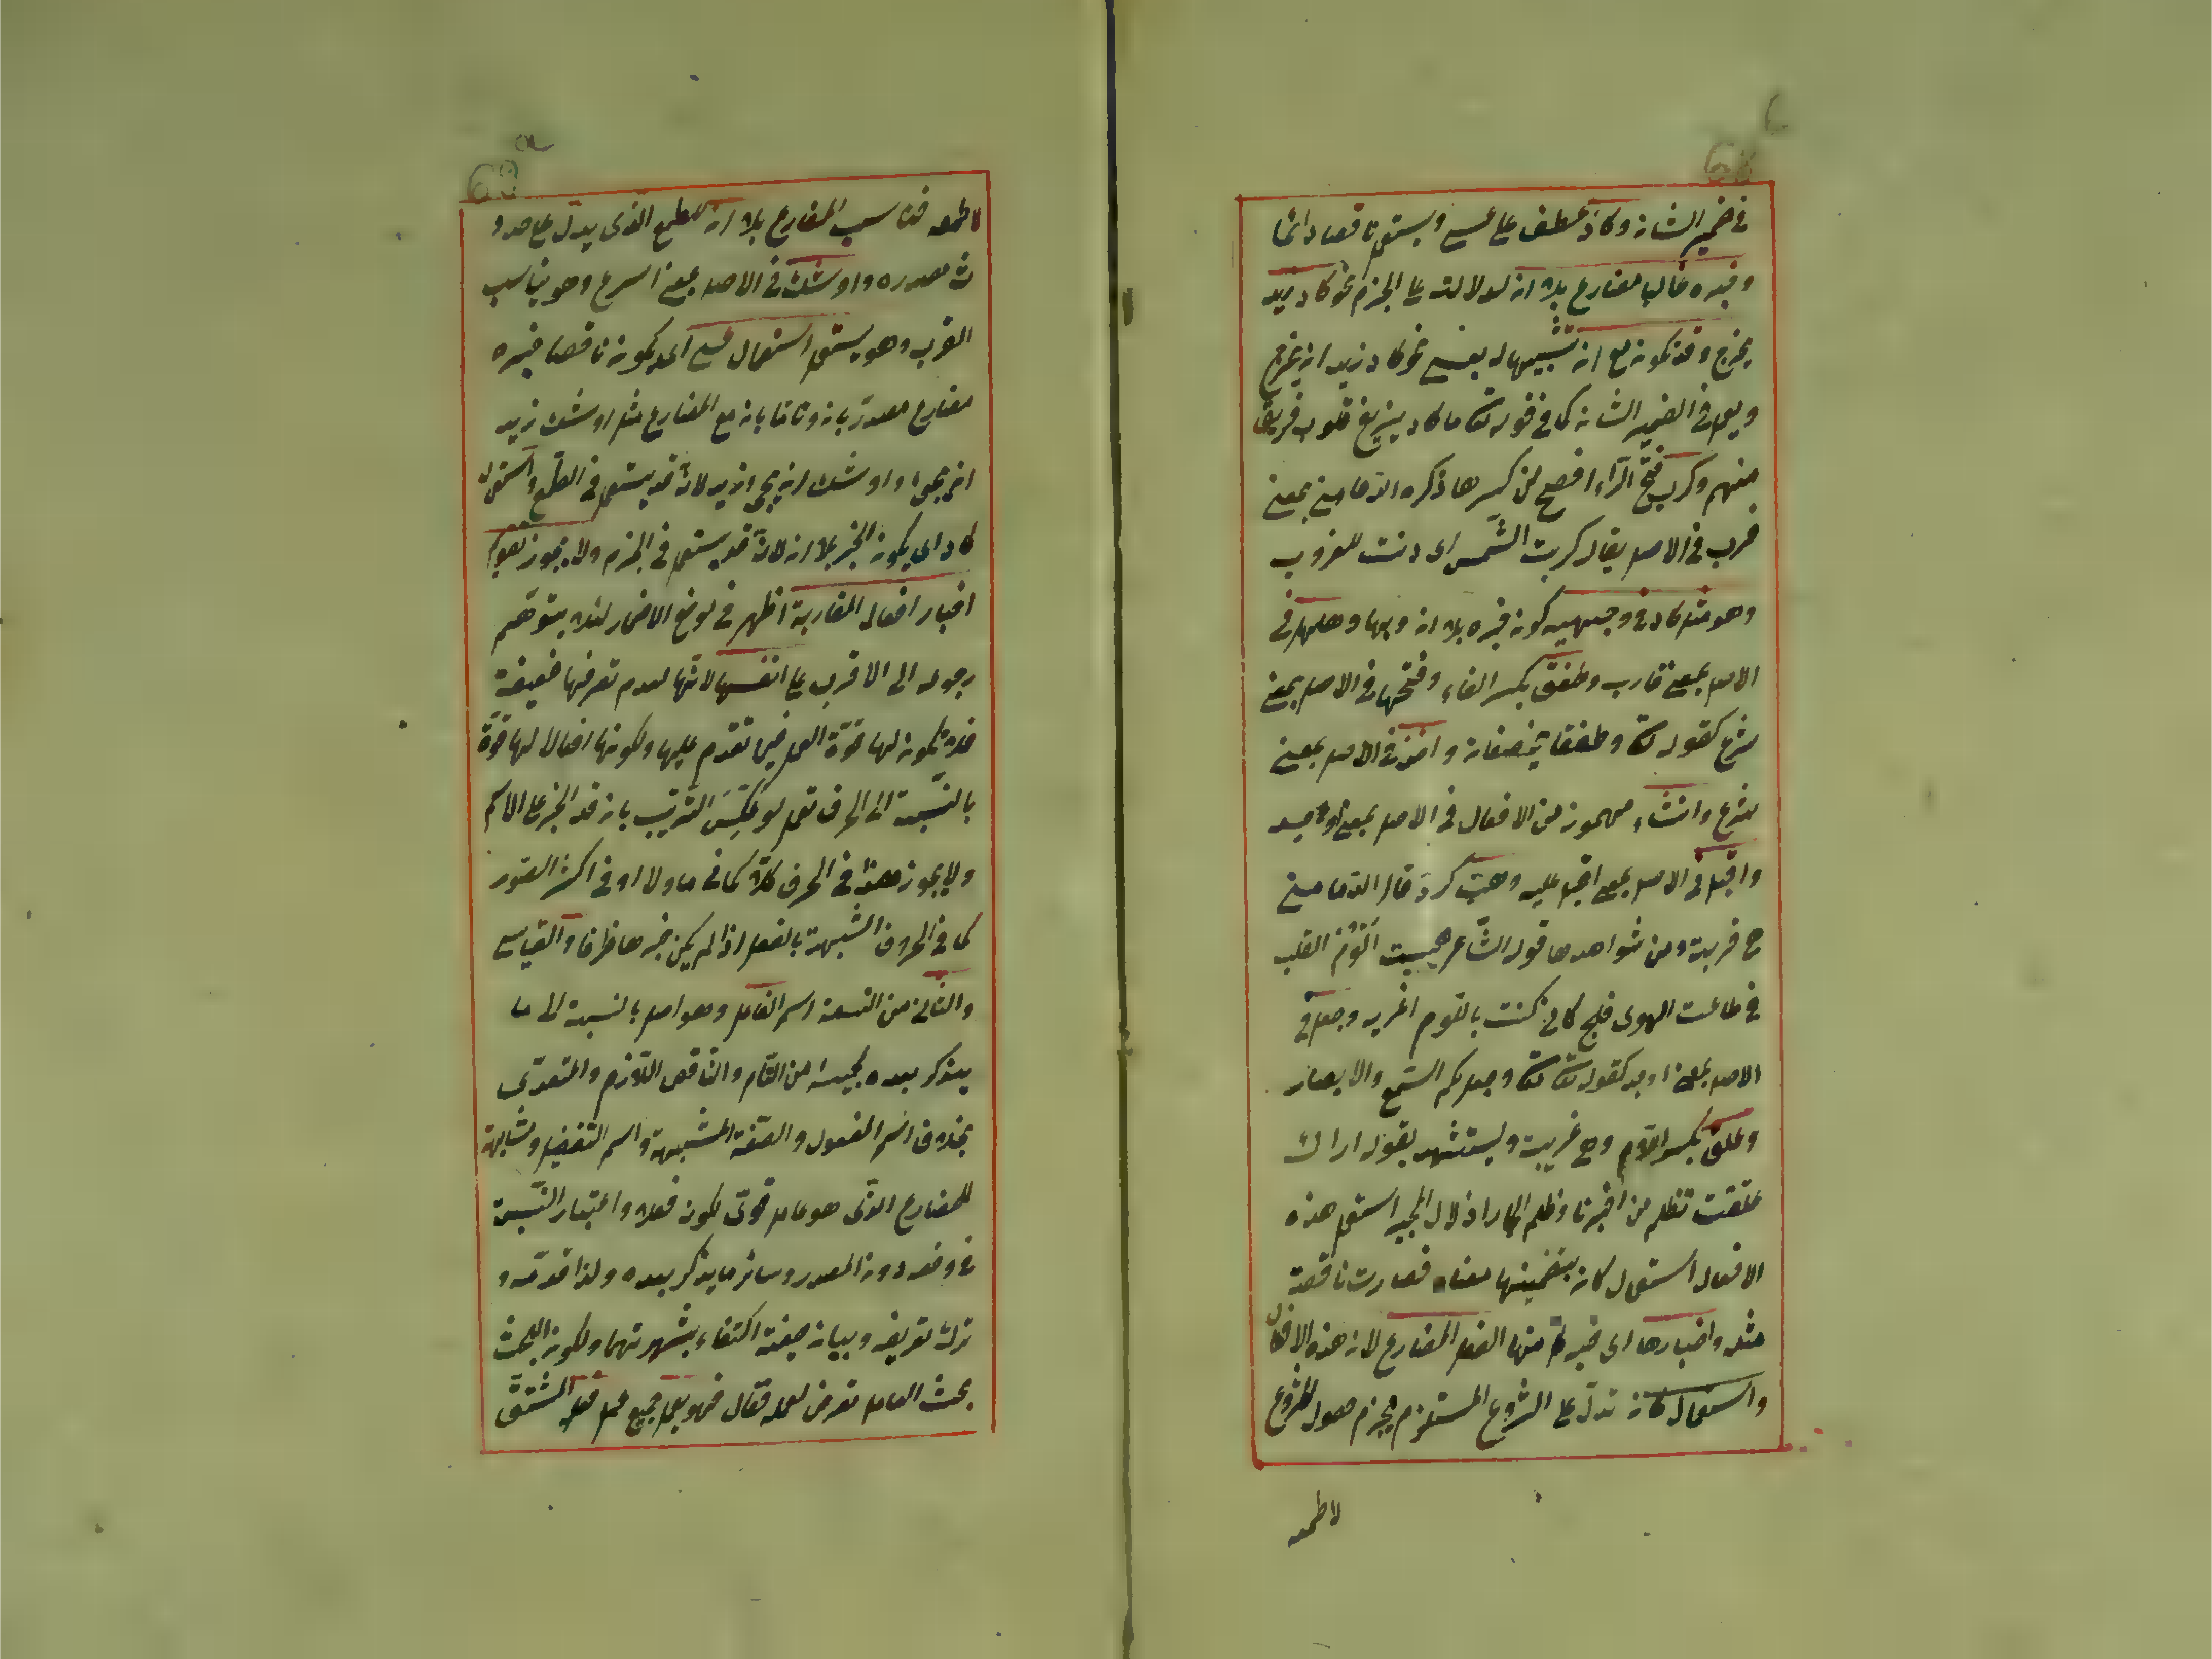 في ضمير الشان وكاد عطف على عسى ويستعمل ناقصا دائما
وخبره غالبا مضارع بلا ان لدلالته على الجزم نحو كاد زيد
يخرج وقد يكون مع ان تشبيها له بعسى نحو كاد زيد ان يخرج
ويعمل في الضمير الشان كما في قوله تعالى ما كاد يزيغ قلوب فريق
منهم وكرب بفتح الراء افصح من كسرها ذكره الدماميني بمعنى
قرب في الاصل يقال كربت الشمس اى دنت للغروب
وهو مثل كاد في وجهيه كون خبره بلا ان وبها وهلهل في
الاصل بمعنى قارب وطفق بكسر الفاء وفتحها في الاصل بمعنى
شرع كقوله تعالى وطفقا يخصفان واخذ في الاصل بمعنى
شرع وانشاء مهموز من الافعال في الاصل بمعنى اوجد
واقبل في الاصل بمعنى اقبل عليه وهب كرد قال الدماميني
هي غريبة ومن شواهدها قول الشاعر هببت الوم القلب
في طاعت الهوى فلج كاني كنت باللوم اغريه وجعل في
الاصل بمعنى اوجد كقوله تعالى وجعل لكم السمع والابصار
وعلق بكسر اللام وهي غريبة ويستشهد بقوله اراك
علقت تظلم من اجرنا وظلم الجار اذلال المجير استعمل هذه
الافعال استعمال كان بتضمينها معناه فصارت ناقصة
مثله واخبارها اى خبر كل منها الفعل المضارع لان هذه الافعال
واستعمال كان تدل على الشروع المستلزم لجزم حصول المشروع
لاطمعه
لاطمعه فناسب المضارع بلا ان للطمع الذى يدل على حدو
ث مصدره واوشك في الاصل بمعنى اسرع وهو يناسب
القرب وهو يستعمل استعمال عسى اى يكون ناقصا خبره
مضارع مصدر بان وتاما بان مع المضارع مثل اوشك زيد
ان يجىء واوشك ان يجىء زيد لانه قد يستعمل في الطمع واستعمال
كاد اى يكون الخبر بلا ان لانه قد يستعمل في الجزم ولا يجوز تقديم
اخبار افعال المقاربة اظهر في موضع الاضمار لئلا يتوهم
رجوعه الى الاقرب على انفسها لانها لعدم تصرفها ضعيفة
فلا يكون لها قوة العمل فيما تقدم عليها ولكونها افعالا لها قوة
بالنسبة الى الحرف تعمل لو عكس الترتيب بان قدم الخبر على الاسم
ولا يجوز هذا في الحرف كلا كما في ما ولا او في اكثر الصور
كما في الحروف المشبهة بالفعل اذا لم يكن خبرها ظرفا والقياسى
والثاني من التسعة اسم الفاعل وهو اصل بالنسبة الى ما
يذكر بعده لمجيئه من التام والناقص اللازم والمتعدى
بخلاف اسم المفعول والصفة المشبهة واسم التفضيل ومشابهة
للمضارع الذى هو عامل قوى لكونه فعلا واعتبار النسبة
في وضعه دون المصدر وسائر ما يذكر بعده ولذا قدمه و
ترك تعريفه وبيان صيغته اكتفاء بشهرتهما ولكون البحث
بحث العامل تعرض لعمله فقال فهو يعمل جميع عمل فعله المشتق